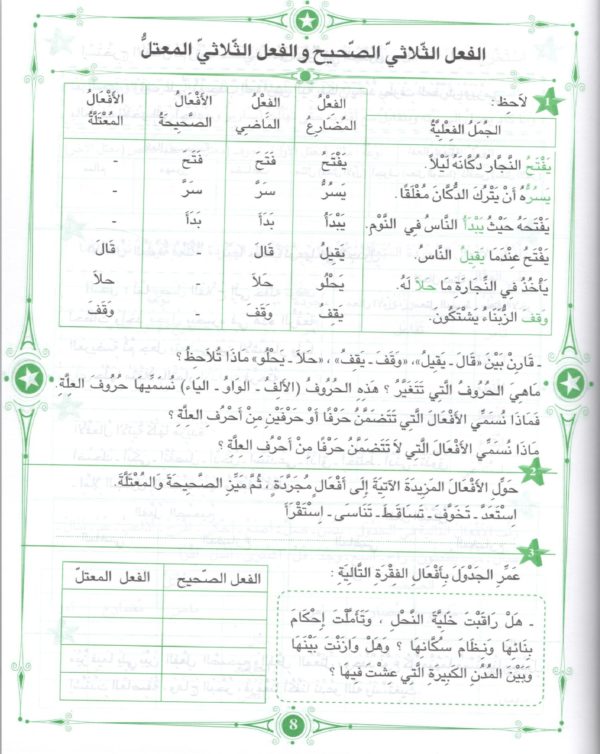 الفعل الثّلاثيّ الصّحيح والفعل الثّلاثيّ المعتلُّ
1 لاَحِظْ :
الجُمَلُ الفِعْلِيَّةُ | الفِعْلُ المُضَارِعُ | الفِعْلُ المَاضِي | الأَفْعَالُ الصَّحِيحَةُ | الأَفْعَالُ المُعْتَلَّةُ
يَفْتَحُ النَّجَّارُ دُكَّانَهُ لَيْلاً | يَفْتَحُ | فَتَحَ | فَتَحَ | -
يَسُرُّهُ أَنْ يَتْرُكَ الدُّكَّانَ مُغْلَقًا. | يَسُرُّ | سَرَّ | سَرَّ | -
يَفْتَحُهُ حَيْثُ يَبْدَأُ النَّاسُ فِي النَّوْمِ. | يَبْدَأُ | بَدَأَ | بَدَأَ | -
يَفْتَحُ عِنْدَمَا يَقِيلُ النَّاسُ. | يَقِيلُ | قَالَ | - | قَالَ
يَأْخُذُ فِي النِّجَارَةِ مَا حَلاَ لَهُ. | يَحْلُو | حَلاَ | - | حَلاَ
وقف الزُّبَنَاءُ يَشْتَكُونَ. | يَقِفُ | وَقَفَ | - | وَقَفَ
ـ قَارِنْ بَيْنَ «قَالَ ـ يَقِيلُ»، «وَقَفَ ـ يَقِفُ» ، «حَلاَ ـ يَحْلُو» مَاذَا تُلاَحِظُ ؟
مَاهِيَ الحُرُوفُ الَّتِي تَتَغَيَّرُ ؟ هَذِهِ الحُرُوفُ (الأَلِفُ ـ الوَاوُ ـ اليَاء) نُسَمِّيهَا حُرُوفَ العِلَّةِ.
فَمَاذَا نُسَمِّي الأَفْعَالَ الَّتِي تَتَضَمَّنُ حَرْفًا أَوْ حَرْفَيْنِ مِنْ أَحْرُفِ العِلَّةِ ؟
مَاذَا نُسَمِّي الأَفْعَالَ الَّتِي لاَ تَتَضَمَّنُ حَرْفًا مِنْ أَحْرُفِ العِلَّةِ ؟
2 حَوِّلِ الأَفْعَالَ المَزِيدَةَ الآتِيَةَ إِلَى أَفْعَالٍ مُجَرَّدَةٍ ، ثُمَّ مَيِّزِ الصَّحِيحَةَ وَالمُعْتَلَّةَ.
اسْتَعَدَّ ـ تَخَوَّفَ ـ تَسَاقَطَ ـ تَنَاسَى ـ اسْتَقْرَأَ
3 عَمِّرِ الجَدْوَلَ بِأَفْعَالِ الفِقْرَةِ التَّالِيَةِ :
ـ هَلْ رَاقَبْتَ خَلِيَّةَ النَّحْلِ ، وَتَأَمَّلْتَ إِحْكَامَ
بِنَائِهَا وَنِظَامَ سُكَّانِهَا ؟ وَهَلْ وَازَنْتَ بَيْنَهَا
وَبَيْنَ المُدُنِ الكَبِيرَةِ الَّتِي عِشْتَ فِيهَا ؟
الفعل الصّحيح | الفعل المعتلّ
8